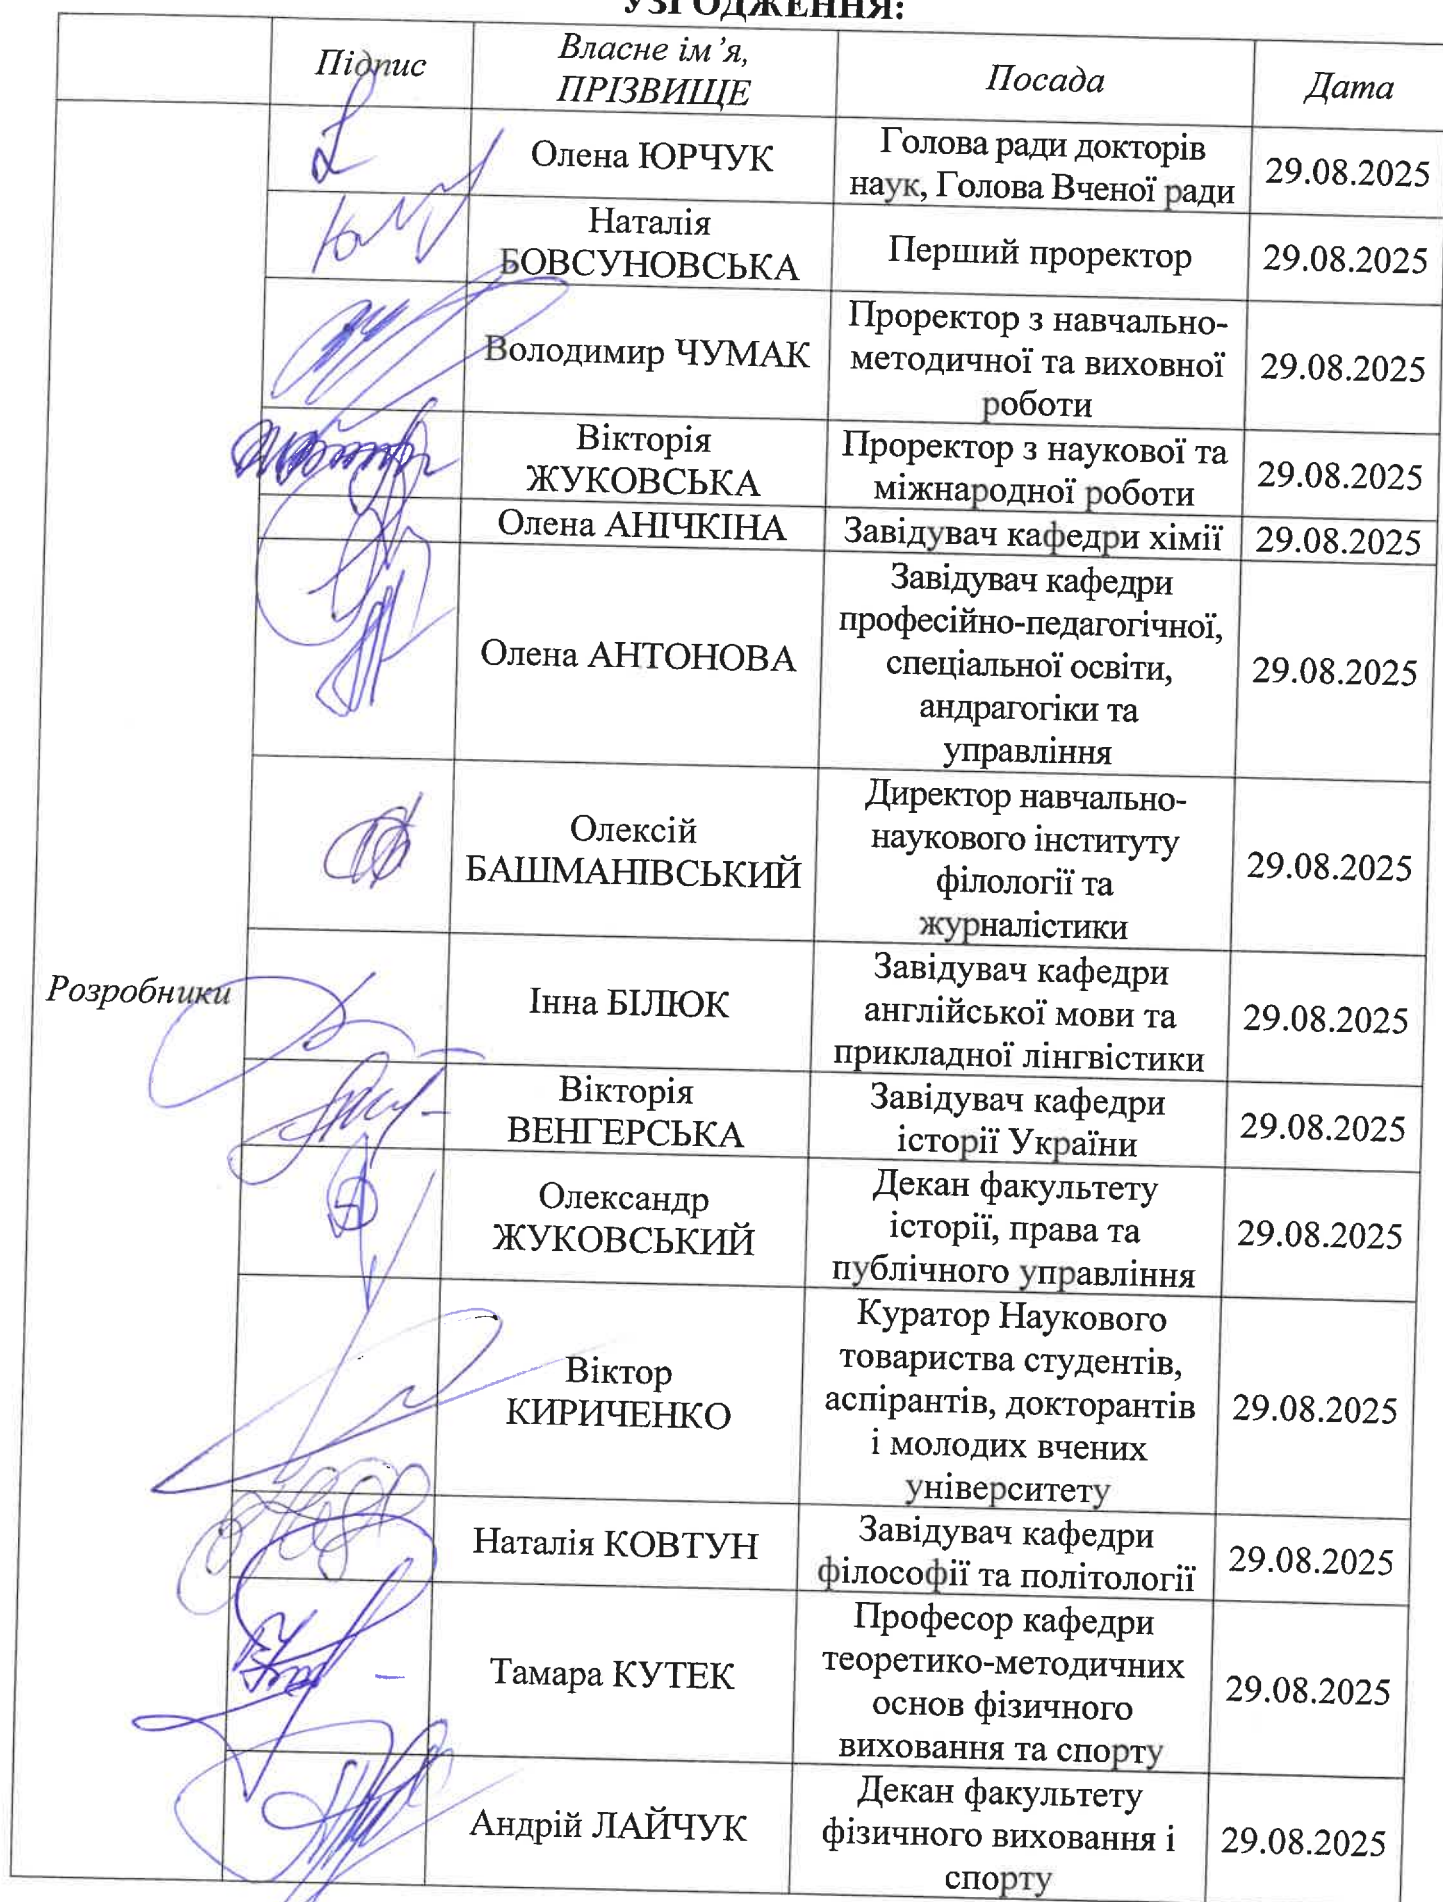 УЗГОДЖЕННЯ:
Підпис
Власне ім’я,
ПРІЗВИЩЕ
Посада
Дата
Розробники
Олена ЮРЧУК
Голова ради докторів
наук, Голова Вченої ради
29.08.2025
Наталія
БОВСУНОВСЬКА
Перший проректор
29.08.2025
Володимир ЧУМАК
Проректор з навчально-
методичної та виховної
роботи
29.08.2025
Вікторія
ЖУКОВСЬКА
Проректор з наукової та
міжнародної роботи
29.08.2025
Олена АНІЧКІНА
Завідувач кафедри хімії
29.08.2025
Олена АНТОНОВА
Завідувач кафедри
професійно-педагогічної,
спеціальної освіти,
андрагогіки та
управління
29.08.2025
Олексій
БАШМАНІВСЬКИЙ
Директор навчально-
наукового інституту
філології та
журналістики
29.08.2025
Інна БІЛЮК
Завідувач кафедри
англійської мови та
прикладної лінгвістики
29.08.2025
Вікторія
ВЕНГЕРСЬКА
Завідувач кафедри
історії України
29.08.2025
Олександр
ЖУКОВСЬКИЙ
Декан факультету
історії, права та
публічного управління
29.08.2025
Віктор
КИРИЧЕНКО
Куратор Наукового
товариства студентів,
аспірантів, докторантів
і молодих вчених
університету
29.08.2025
Наталія КОВТУН
Завідувач кафедри
філософії та політології
29.08.2025
Тамара КУТЕК
Професор кафедри
теоретико-методичних
основ фізичного
виховання та спорту
29.08.2025
Андрій ЛАЙЧУК
Декан факультету
фізичного виховання і
спорту
29.08.2025